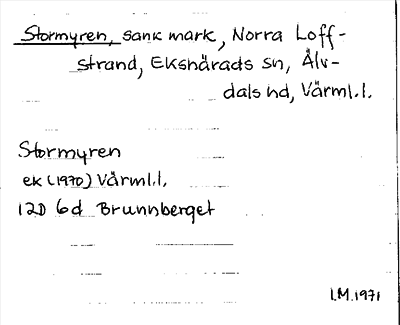 Stormyren, sank mark, Norra Loff-
strand, Ekshärads sn, Älv-
dals hd, Värml.l.
Stormyren
ek (1970) Värml.l.
12D 6d Brunnberget
I.M.1971